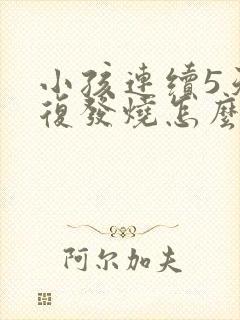 小孩連續5
復發燒怎麼
阿尔加夫